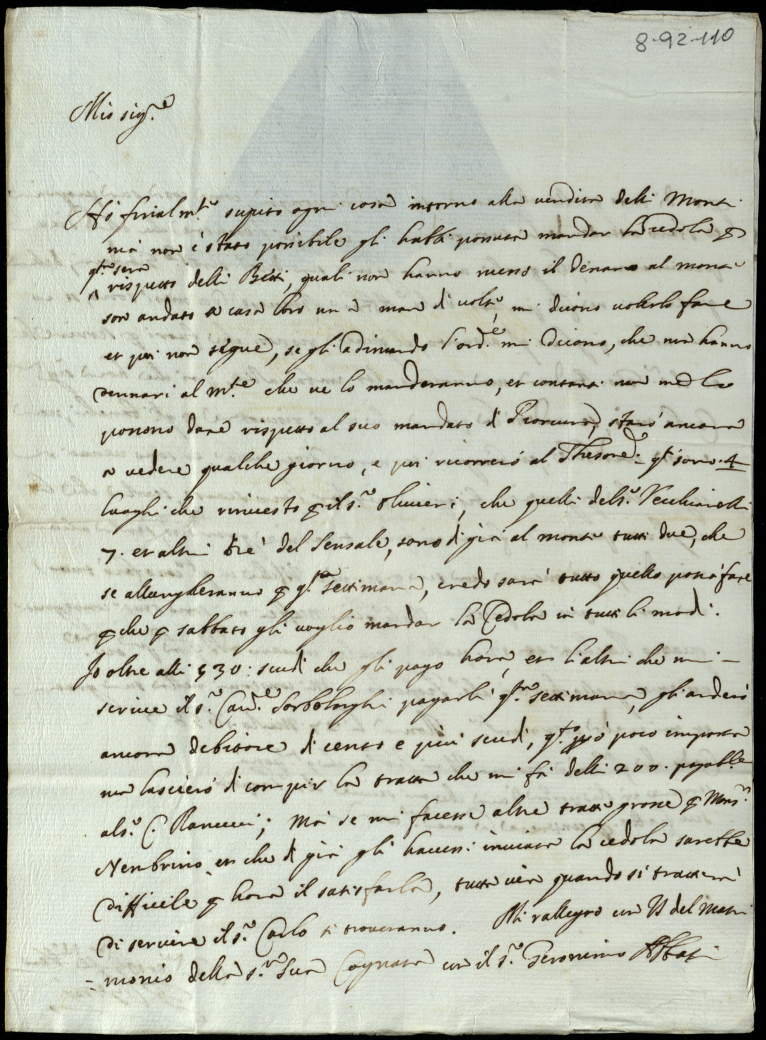 8-92-110
Mio sig.re
Hò finalm.te supito ogni cosa intorno alla vendita delli Monti
mà non è stato possibile gli habbi possuta mandar la Cedola p
q.ta sera
rispetto delli Betti, quali non hanno messo il denaro al monte
son andato a casa loro un a man di volte, mi dicono volerlo fare
et poi non segue, se gli adimando l'ord.e mi dicono, che non hanno
dennari al m.te che ve lo manderanno, et contanti non me li
possono dare rispetto al suo mandato di Procura, starò ancora
a vedere qualche giorno, e poi ricorrerò al Thesor.re q.ti sono 4
luoghi che rinvesto p il s.r Olivieri, che quelli del s.r Vecchiarelli
7. et altri trè del Sensale, sono di già al monte tutti due, che
se allungheranno p q.ta settimana, credo sarà tutto quello potrò fare
p che p sabbato gli voglio mandar la Cedola in tutti li modi.
Io oltre alli 530: scudi che gli pago hora, et l'altri che mi
scrive il s.r Cav.re Sorbolonghi pagarli q.ta settimana, gli anderò
ancora debitore di cento e più scudi, q.to però poco importa
nè lascierò di compir la tratta che mi fà delli 200. pagabile
al s.r C. Ranucci; Mà se mi facesse altre tratte grosse p Mons.r
Nembrino et che di già gli havessi inviata la cedola sarebbe
difficile p hora il satisfarla, tutta via quando si tratterà
di servire il s.r Carlo si troveranno. Mi rallegro con VS del Matri
=monio della s.ra Sua Cognata con il s.r Geronimo Abbati